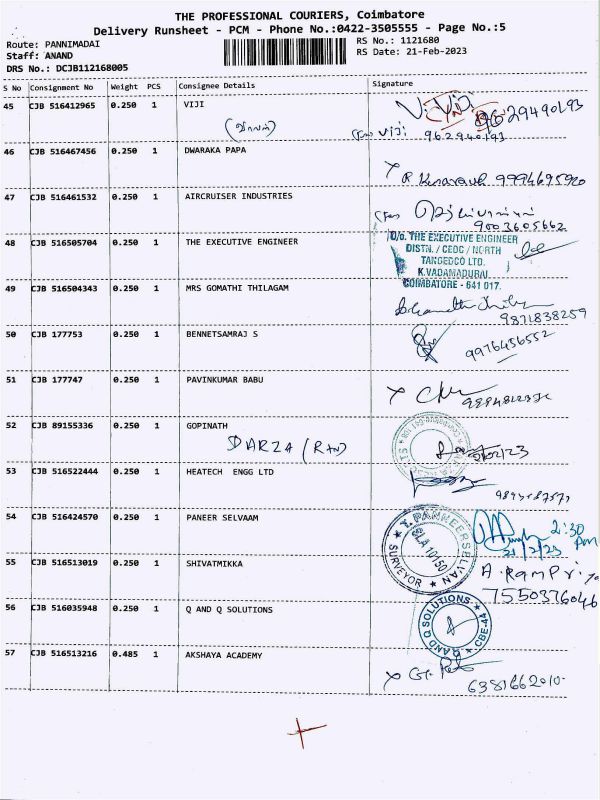 THE PROFESSIONAL COURIERS, Coimbatore
Delivery Runsheet - PCM - Phone No.:0422-3505555 - Page No.:5
Route: PANNIMADAI
RS No.: 1121680
Staff: ANAND
RS Date: 21-Feb-2023
DRS No.: DCJB112168005
S No Consignment No Weight PCS Consignee Details Signature
45 CJB 516412965 0.250 1 VIJI
9629490193
VIJI 9629490193
46 CJB 516467456 0.250 1 DWARAKA PAPA
9994695920
47 CJB 516461532 0.250 1 AIRCRUISER INDUSTRIES
9003605662
48 CJB 516505704 0.250 1 THE EXECUTIVE ENGINEER
O/o. THE EXECUTIVE ENGINEER
DISTN. / CEDC / NORTH
TANGEDCO LTD.
K.VADAMADURAI,
COIMBATORE - 641 017.
49 CJB 516504343 0.250 1 MRS GOMATHI THILAGAM
9871838259
50 CJB 177753 0.250 1 BENNETSAMRAJ S
9976456552
51 CJB 177747 0.250 1 PAVINKUMAR BABU
52 CJB 89155336 0.250 1 GOPINATH
DARZA
53 CJB 516522444 0.250 1 HEATECH ENGG LTD
54 CJB 516424570 0.250 1 PANEER SELVAAM
T. PANNEERSELVAN
RLA 10150
SURVEYOR
2:30 pm
21/2/23
55 CJB 516513019 0.250 1 SHIVATMIKKA
A. RamPri
7550376046
56 CJB 516035948 0.250 1 Q AND Q SOLUTIONS
Q AND Q SOLUTIONS
CBE-44
57 CJB 516513216 0.485 1 AKSHAYA ACADEMY
6381662010